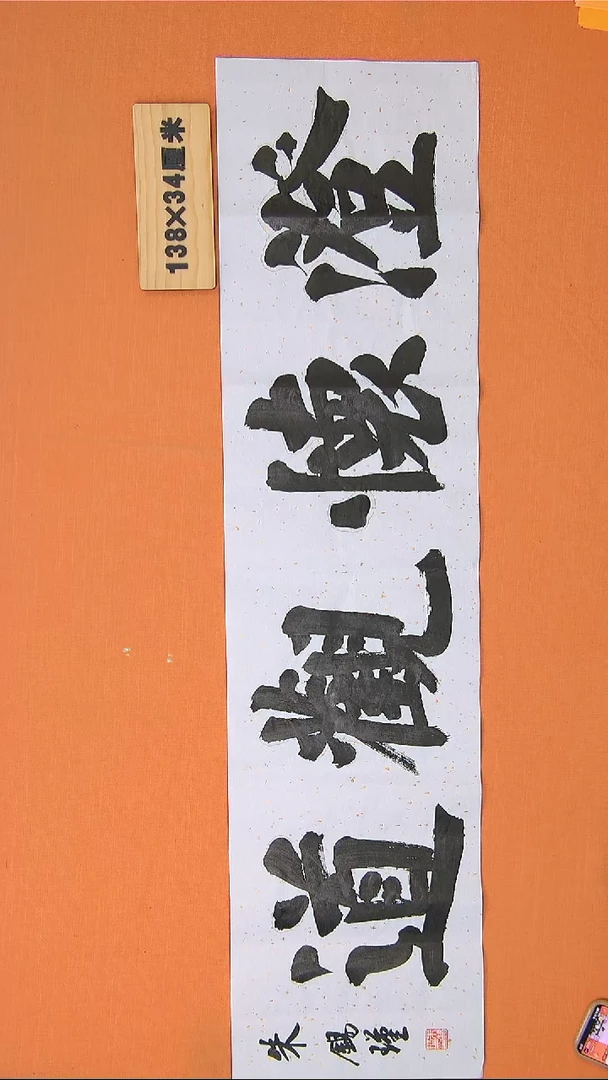 138×34厘米
澄懷觀道
朱錫